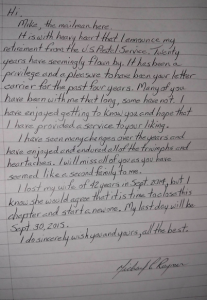 Hi,
Mike, the mailman here.
It is with heavy hart that I announce my
retirement from the U.S Postal Service. Twenty
years have seemingly flown by. It has been a
privilege and a pleasure to have been your letter
carrier for the past four years. Many of you
have been with me that long, some have not. I
have enjoyed getting to know you and hope that
I have provided a service to your liking.
I have seen many changes over the years and
have enjoyed and endured all of the triumphs and
heartaches. I will miss all of you as you have
seemed like a second family to me.
I lost my wife of 42 years in Sept. 2014, but I
know she would agree that it is time to close this
chapter and start a new one. My last day will be
Sept 30, 2015.
I do sincerely wish you and yours, all the best.